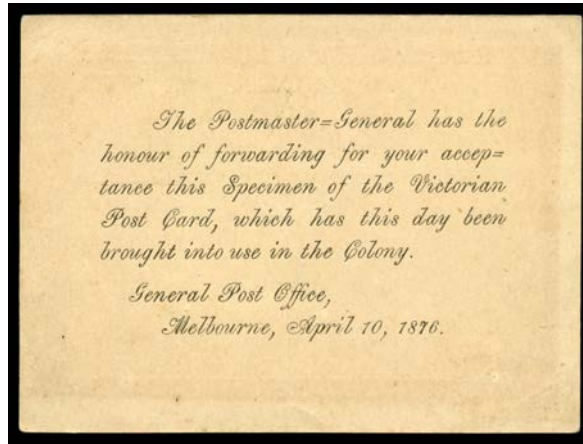 The Postmaster=General has the
honour of forwarding for your accep=
tance this Specimen of the Victorian
Post Card, which has this day been
brought into use in the Colony.
General Post Office,
Melbourne, April 10, 1876.